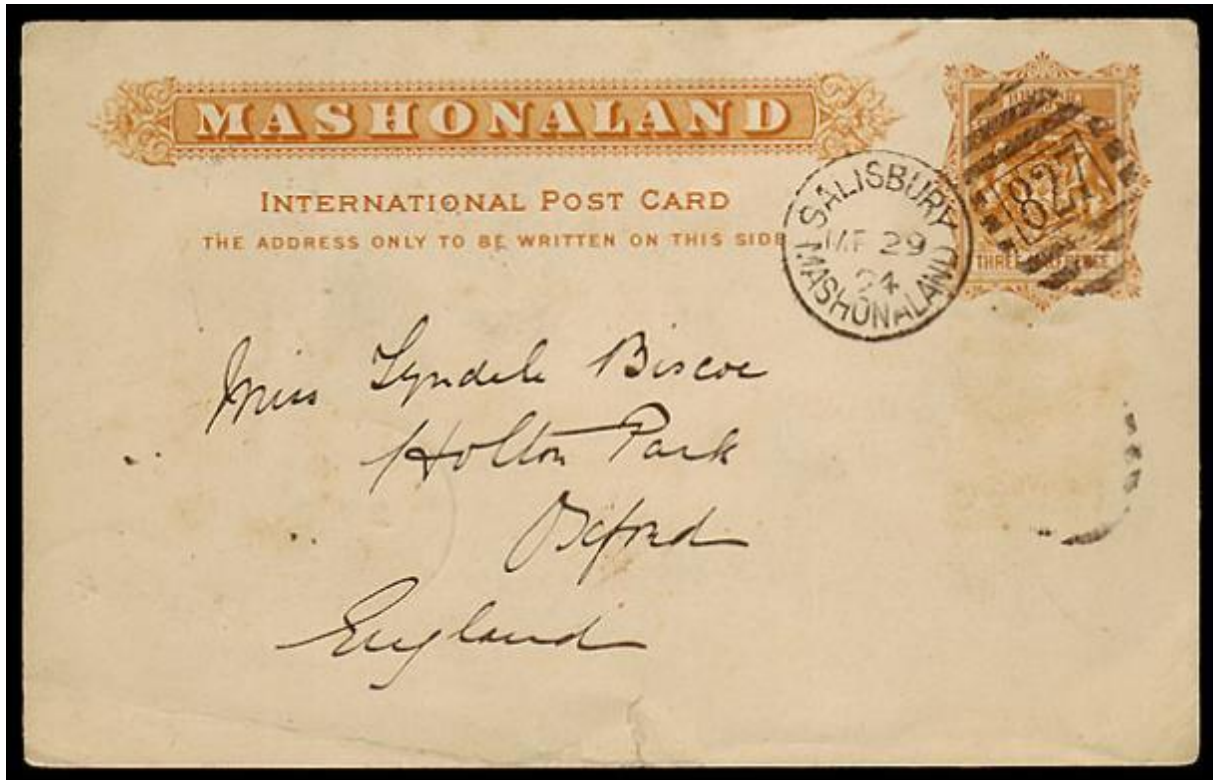 MASHONALAND
INTERNATIONAL POST CARD
THE ADDRESS ONLY TO BE WRITTEN ON THIS SIDE
SALISBURY
29
94
MASHONALAND
827
THREE HALFPENCE
Miss Tyndale Biscoe
Holton Park
Oxford
England